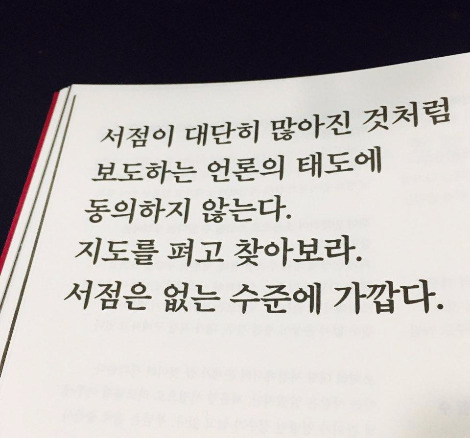 서점이 대단히 많아진 것처럼
보도하는 언론의 태도에
동의하지 않는다.
지도를 펴고 찾아보라.
서점은 없는 수준에 가깝다.